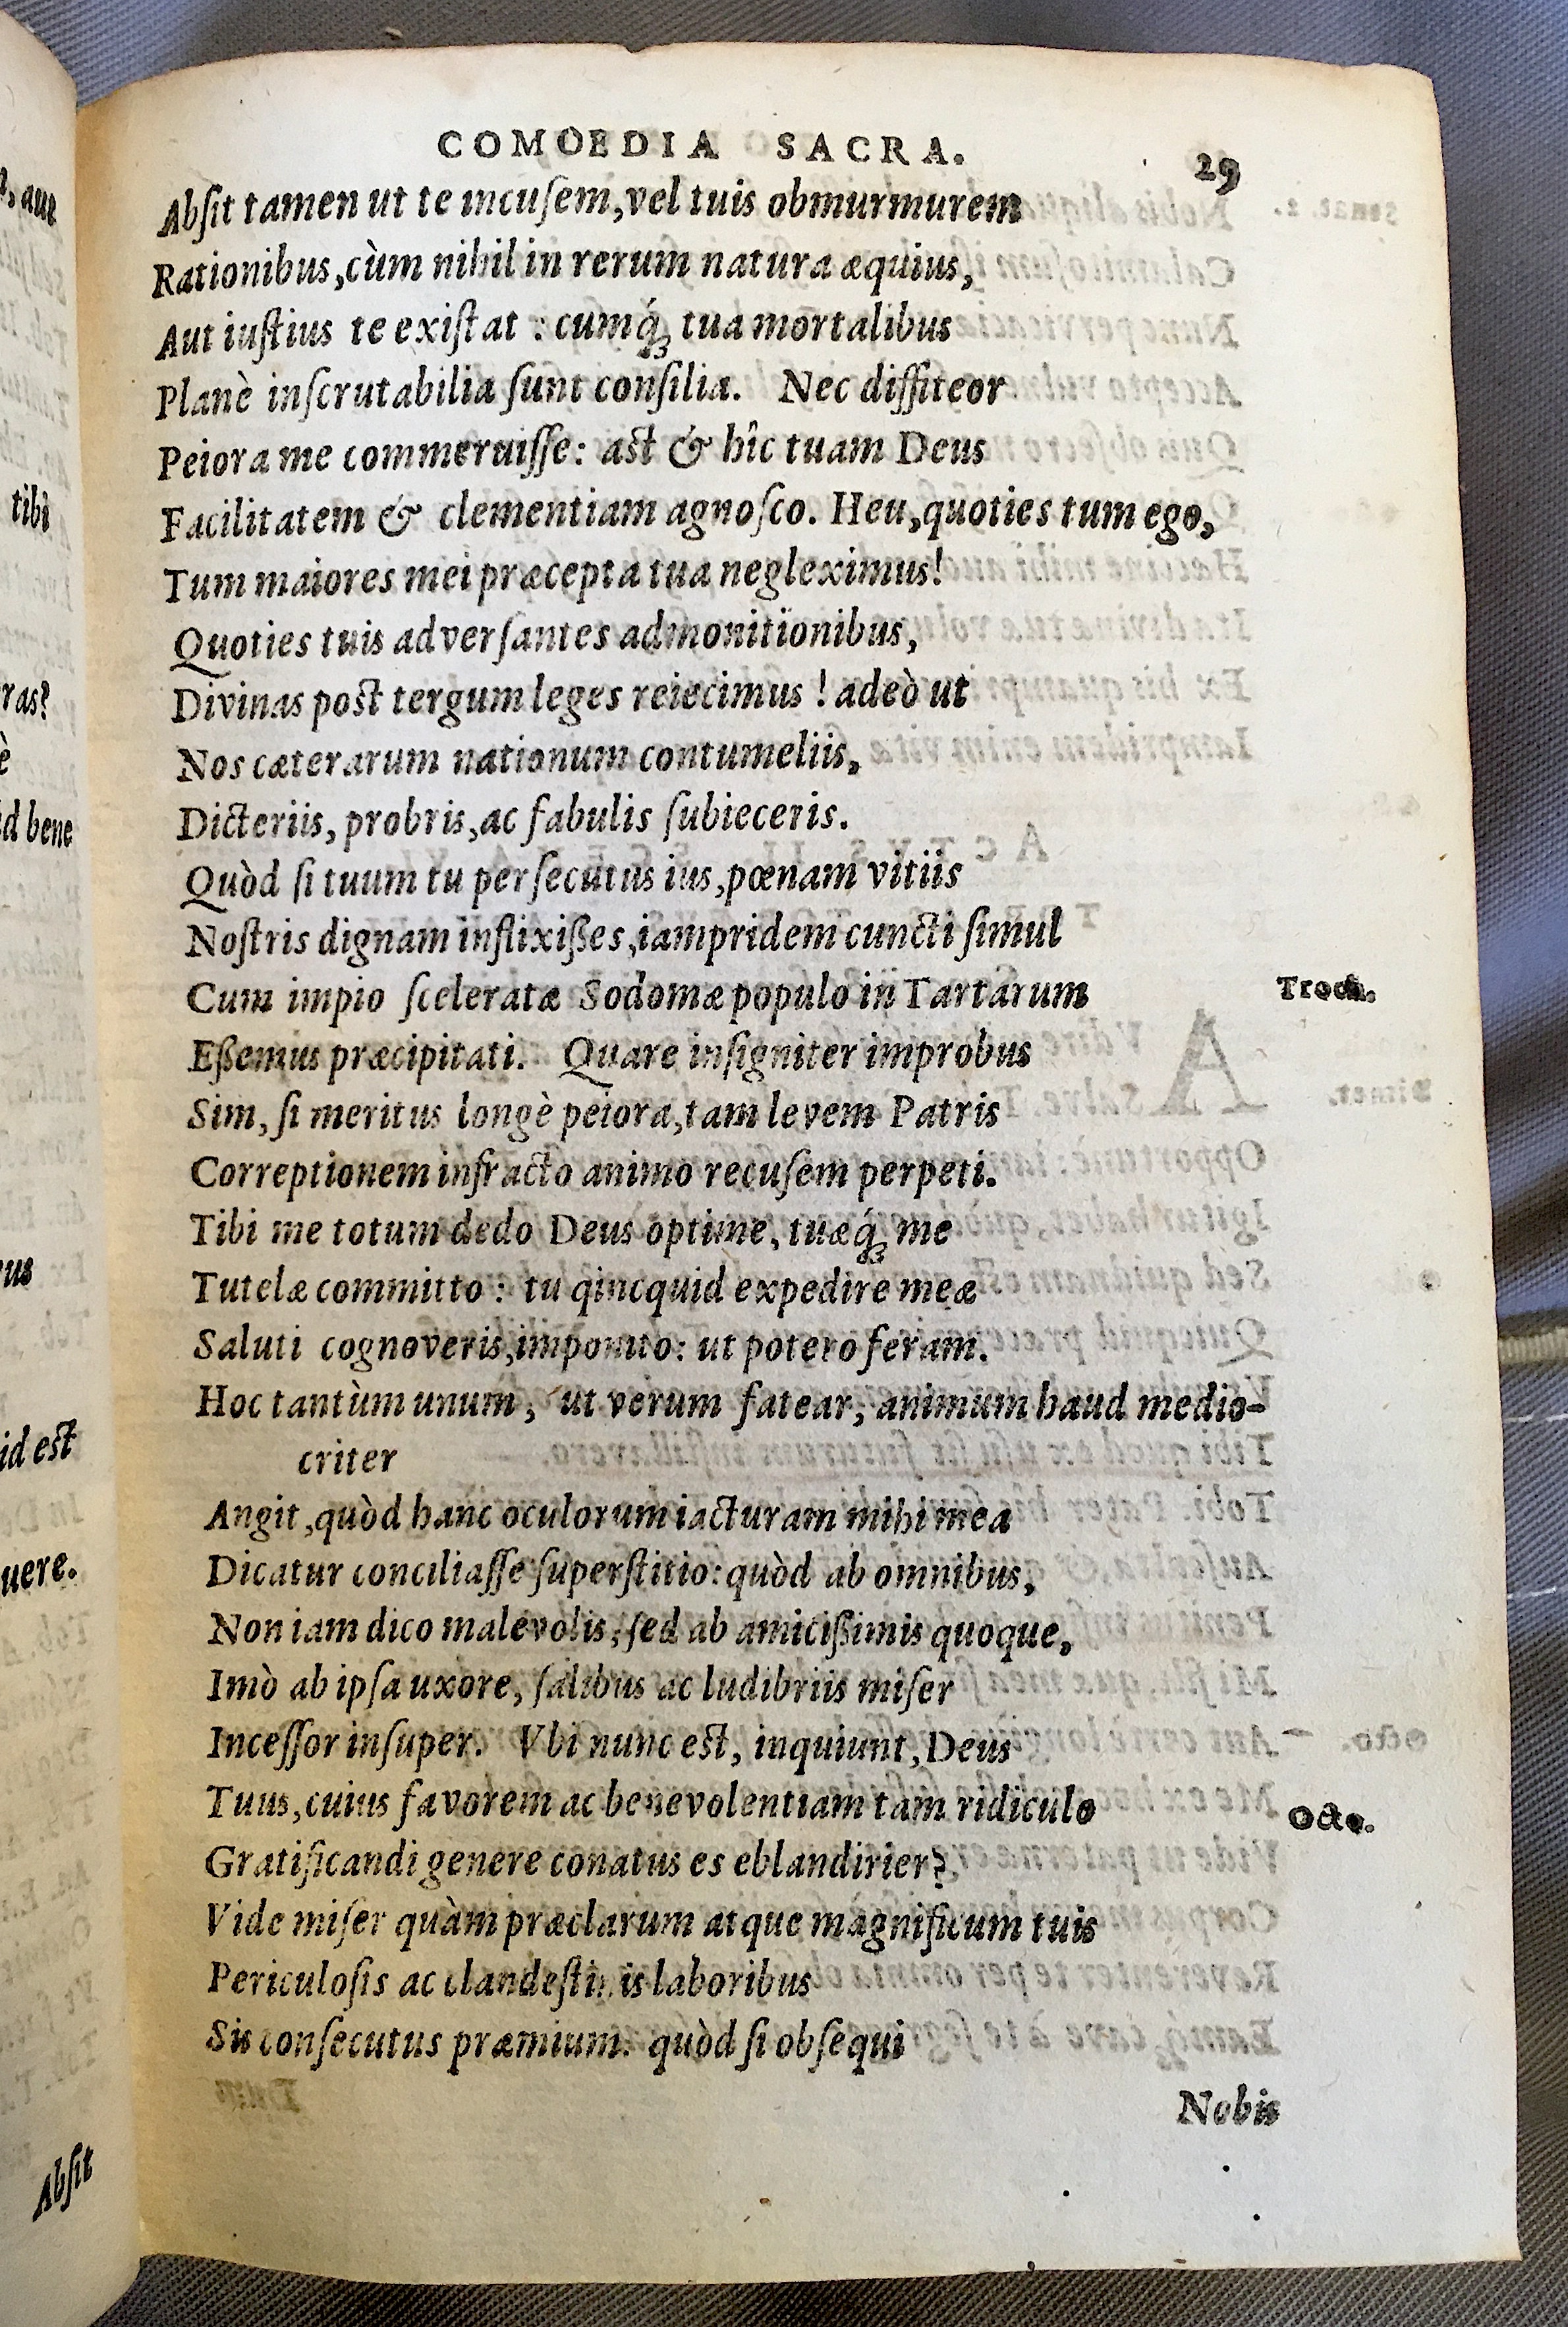 COMOEDIA SACRA. 29
Absit tamen ut te incusem, vel tuis obmurmurem
Rationibus, cùm nihil in rerum natura æquius,
Aut iustius te existat: cumq́; tua mortalibus
Planè inscrutabilia sunt consilia. Nec diffiteor
Peiora me commeruisse: ast & hîc tuam Deus
Facilitatem & clementiam agnosco. Heu, quoties tum ego,
Tum maiores mei præcepta tua negleximus!
Quoties tuis adversantes admonitionibus,
Divinas post tergum leges reiecimus! adeò ut
Nos cæterarum nationum contumeliis,
Dicteriis, probris, ac fabulis subieceris.
Quòd si tuum tu persecutus ius, pœnam vitiis
Nostris dignam inflixißes, iampridem cuncti simul
Cum impio sceleratæ Sodomæ populo in Tartarum
Troch.
Eßemus præcipitati. Quare insigniter improbus
Sim, si meritus longè peiora, tam levem Patris
Correptionem infracto animo recusem perpeti.
Tibi me totum dedo Deus optime, tuæq́; me
Tutelæ committo: tu qincquid expedire meæ
Saluti cognoveris, imponito: ut potero feram.
Hoc tantùm unum, ut verum fatear, animum haud medio-
criter
Angit, quòd hanc oculorum iacturam mihi mea
Dicatur conciliasse superstitio: quòd ab omnibus,
Non iam dico malevolis, sed ab amicißimis quoque,
Imò ab ipsa uxore, salibus ac ludibriis miser
Incessor insuper. Vbi nunc est, inquiunt, Deus
Tuus, cuius favorem ac benevolentiam tam ridiculo
Octo.
Gratificandi genere conatus es eblandirier?
Vide miser quàm præclarum atque magnificum tuis
Periculosis ac clandestinis laboribus
Sis consecutus præmium. quòd si obsequi
Nobis
tibi
ras?
è
id bene
us
id est
uere.
Absit